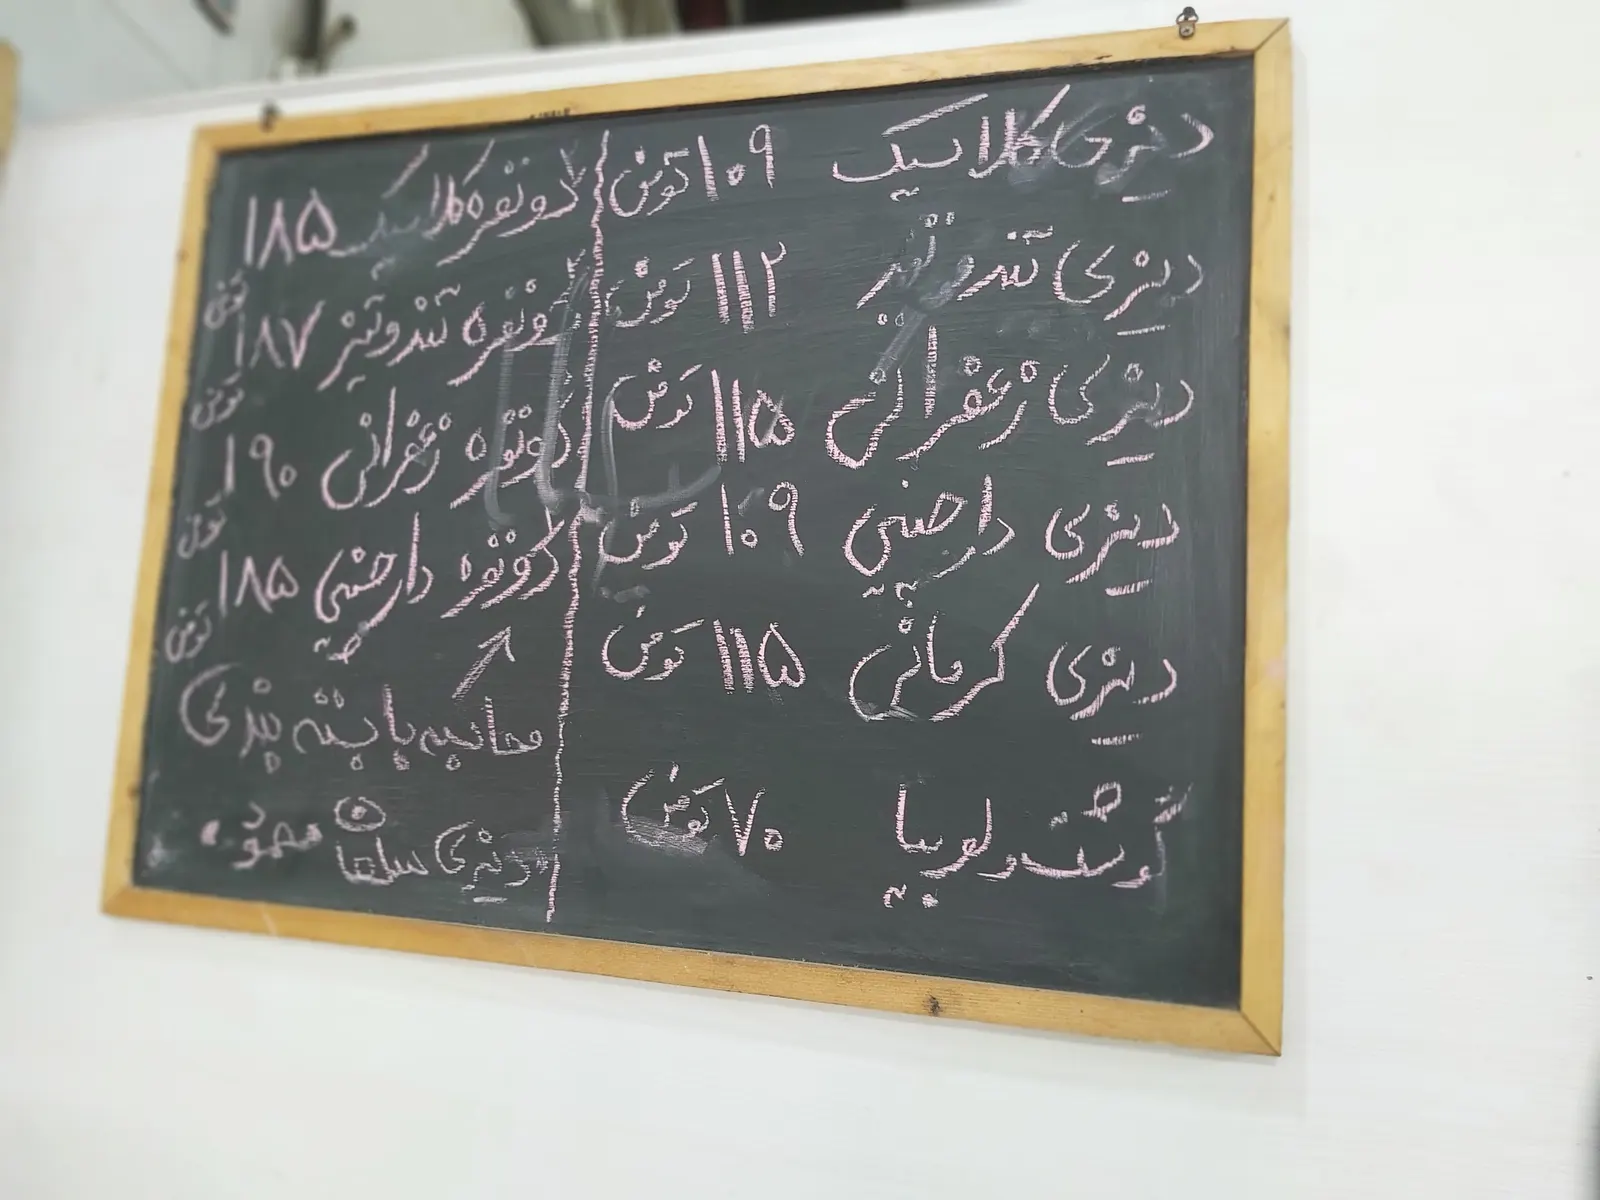 دیزی کلاسیک ۱۰۹ تومن
دیزی تند و تیز ۱۱۲ تومن
دیزی زعفرانی ۱۱۵ تومن
دیزی دارچینی ۱۰۹ تومن
دیزی کرمانی ۱۱۵ تومن
گوشت و لوبیا ۷۰ تومن
دونفره کلاسیک ۱۸۵ تومن
دونفره تند و تیز ۱۸۷ تومن
دونفره زعفرانی ۱۹۰ تومن
دونفره دارچینی ۱۸۵ تومن
با بسته بندی
دیزی